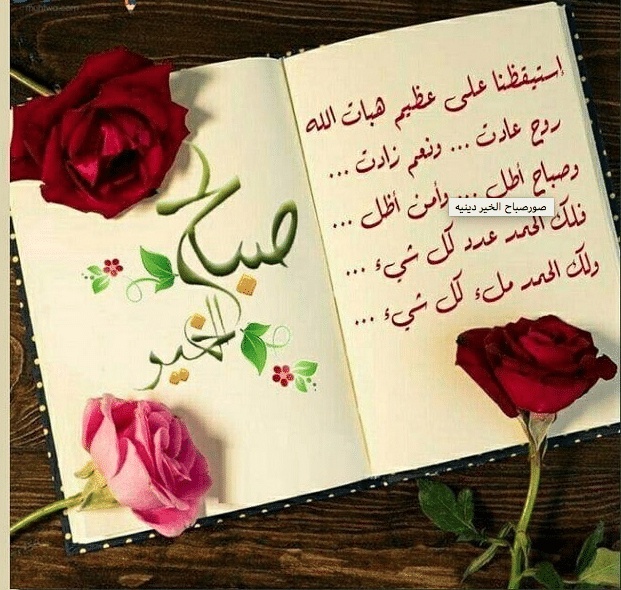 إستيقظنا على عظيم هبات الله
روح عادت ... ونعم زادت ...
وصباح أطل ... وأمن أظل ...
صورصباح الخير دينيه
فلك الحمد عدد كل شيء ...
ولك الحمد ملء كل شيء ...
صباح
الخير